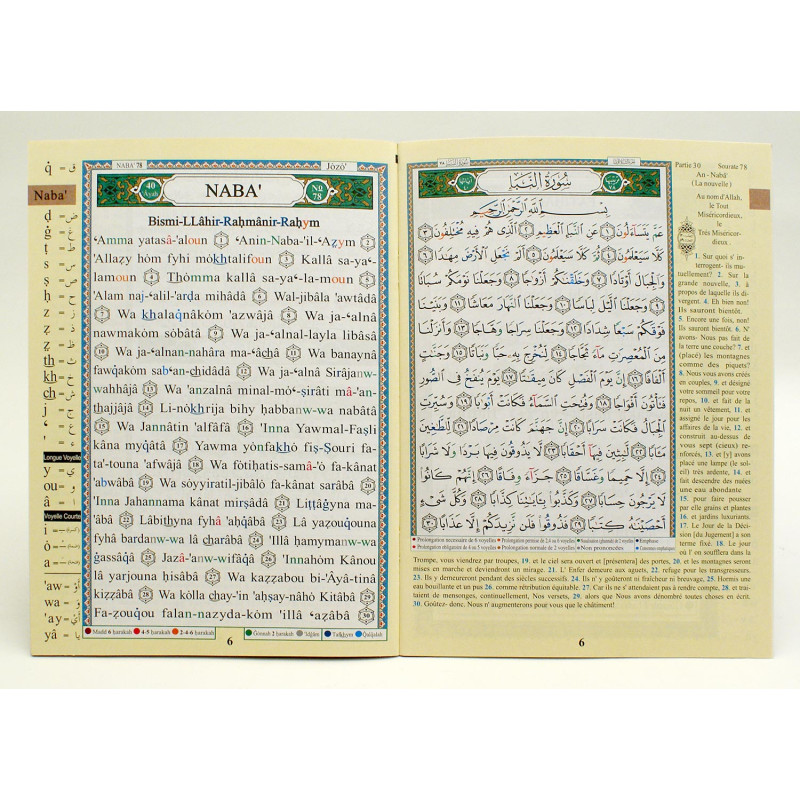 Naba'
NABA' 78
Józó'
40
Âyah
NABA'
No
78
Bismi-LLâhir-Raḥmânir-Raḥym
ʿAmma yatasâ-'aloun ① ʿAnin-Naba-'il-ʿAẓym ②
'Allaẓy hóm fyhi mókhtalifoun ③ Kallâ sa-yaʿ-
lamoun ④ Thómma kallâ sa-yaʿ-la-moun ⑤
'Alam naj-ʿalil-'arḍa mihâdâ ⑥ Wal-jibâla 'awtâdâ
⑦ Wa khalaqnâkóm 'azwâjâ ⑧ Wa ja-ʿalnâ
nawmakóm sóbâtâ ⑨ Wa ja-ʿalnal-layla libâsâ
⑩ Wa ja-ʿalnan-nahâra ma-ʿâchâ ⑪ Wa banaynâ
fawqakóm sabʿan-chidâdâ ⑫ Wa ja-ʿalnâ Sirâjanw-
wahhâjâ ⑬ Wa 'anzalnâ minal-móʿ-ṣirâti mâ-'an-
thajjâjâ ⑭ Li-nókhrija bihy ḥabbanw-wa nabâtâ
⑮ Wa Jannâtin 'alfâfâ ⑯ 'Inna Yawmal-Faṣli
kâna myqâtâ ⑰ Yawma yónfakhó fiṣ-Ṣouri fa-
ta'-touna 'afwâjâ ⑱ Wa fótiḥatis-samâ-'ó fa-kânat
'abwâbâ ⑲ Wa sóyyiratil-jibâló fa-kânat sarâbâ ⑳
'Inna Jahannama kânat mirṣâdâ ㉑ Liṭṭâġyna ma-
'âbâ ㉒ Lâbithyna fyhâ 'aḥqâbâ ㉓ Lâ yaẓouqouna
fyhâ bardanw-wa lâ charâbâ ㉔ 'Illâ ḥamymanw-wa
ġassâqâ ㉕ Jazâ-'anw-wifâqâ ㉖ 'Innahóm Kânou
lâ yarjouna ḥisâbâ ㉗ Wa kaẓẓabou bi-'Âyâ-tinâ
kiẓẓâbâ ㉘ Wa kólla chay-'in 'aḥṣay-nâhó Kitâbâ ㉙
Fa-ẓouqou falan-nazyda-kóm 'illâ ʿaẓâbâ ㉚
Madd 6 ḥarakah 4-5 ḥarakah 2-4-6 ḥarakah Ġonnah 2 ḥarakah 'Idġâm Tafkhym Qalqalah
6
q̇ = ق
ḍ = ض
ġ = غ
ṭ = ط
s = س
ṣ = ص
ḥ = ح
z = ز
th = ث
kh = خ
ch = ش
j = ج
ʿ = ع
' = ء
Longue Voyelle
y = ي
ou = و
â = ا
Voyelle Courte
i =
ó =
a =
'aw = أَوْ
wa = وَ
'ay = أَيْ
yâ = يَا
سُورَةُ النَّبَإِ
بِسْمِ اللَّهِ الرَّحْمَٰنِ الرَّحِيمِ
عَمَّ يَتَسَاءَلُونَ ١ عَنِ النَّبَإِ الْعَظِيمِ ٢ الَّذِي هُمْ فِيهِ مُخْتَلِفُونَ ٣
كَلَّا سَيَعْلَمُونَ ٤ ثُمَّ كَلَّا سَيَعْلَمُونَ ٥ أَلَمْ نَجْعَلِ الْأَرْضَ مِهَادًا ٦
وَالْجِبَالَ أَوْتَادًا ٧ وَخَلَقْنَاكُمْ أَزْوَاجًا ٨ وَجَعَلْنَا نَوْمَكُمْ سُبَاتًا
٩ وَجَعَلْنَا اللَّيْلَ لِبَاسًا ١٠ وَجَعَلْنَا النَّهَارَ مَعَاشًا ١١ وَبَنَيْنَا
فَوْقَكُمْ سَبْعًا شِدَادًا ١٢ وَجَعَلْنَا سِرَاجًا وَهَّاجًا ١٣ وَأَنزَلْنَا
مِنَ الْمُعْصِرَاتِ مَاءً ثَجَّاجًا ١٤ لِّنُخْرِجَ بِهِ حَبًّا وَنَبَاتًا ١٥ وَجَنَّاتٍ
أَلْفَافًا ١٦ إِنَّ يَوْمَ الْفَصْلِ كَانَ مِيقَاتًا ١٧ يَوْمَ يُنفَخُ فِي الصُّورِ
فَتَأْتُونَ أَفْوَاجًا ١٨ وَفُتِحَتِ السَّمَاءُ فَكَانَتْ أَبْوَابًا ١٩ وَسُيِّرَتِ
الْجِبَالُ فَكَانَتْ سَرَابًا ٢٠ إِنَّ جَهَنَّمَ كَانَتْ مِرْصَادًا ٢١ لِّلطَّاغِينَ
مَآبًا ٢٢ لَّابِثِينَ فِيهَا أَحْقَابًا ٢٣ لَّا يَذُوقُونَ فِيهَا بَرْدًا وَلَا شَرَابًا
٢٤ إِلَّا حَمِيمًا وَغَسَّاقًا ٢٥ جَزَاءً وِفَاقًا ٢٦ إِنَّهُمْ كَانُوا
لَا يَرْجُونَ حِسَابًا ٢٧ وَكَذَّبُوا بِآيَاتِنَا كِذَّابًا ٢٨ وَكُلَّ شَيْءٍ
أَحْصَيْنَاهُ كِتَابًا ٢٩ فَذُوقُوا فَلَن نَّزِيدَكُمْ إِلَّا عَذَابًا ٣٠
Prolongation nécessaire de 6 voyelles Prolongation permise de 2,4 ou 6 voyelles Nasalisation (ghunnah) de 2 voyelles Emphase
Prolongation obligatoire de 4 ou 5 voyelles Prolongation normale de 2 voyelles Non prononcées
Partie 30 Sourate 78
An - Nabâ'
(La nouvelle)
Au nom d'Allah,
le Tout
Miséricordieux,
le
Très Miséricor-
dieux .
1. Sur quoi s' in-
terrogent- ils mu-
tuellement? 2. Sur la
grande nouvelle, 3. à
propos de laquelle ils di-
vergent. 4. Eh bien non!
Ils sauront bientôt.
5. Encore une fois, non!
Ils sauront bientôt. 6. N'
avons- Nous pas fait de
la terre une couche? 7. et
(placé) les montagnes
comme des piquets?
8. Nous vous avons créés
en couples, 9. et désigné
votre sommeil pour votre
repos, 10. et fait de la
nuit un vêtement, 11. et
assigné le jour pour les
affaires de la vie, 12. et
construit au-dessus de
vous sept (cieux) ren-
forcés, 13. et [y] avons
placé une lampe (le sol-
eil) très ardente, 14. et
fait descendre des nuées
une eau abondante
15. pour faire pousser
par elle grains et plantes
16. et jardins luxuriants.
17. Le Jour de la Déci-
sion [du Jugement] a son
terme fixé. 18. Le jour
où l' on soufflera dans la
Trompe, vous viendrez par troupes, 19. et le ciel sera ouvert et [présentera] des portes, 20. et les montagnes seront
mises en marche et deviendront un mirage. 21. L' Enfer demeure aux aguets, 22. refuge pour les transgresseurs.
23. Ils y demeureront pendant des siècles successifs. 24. Ils n' y goûteront ni fraîcheur ni breuvage, 25. Hormis une
eau bouillante et un pus 26. comme rétribution équitable. 27. Car ils ne s'attendaient pas à rendre compte, 28. et trai-
taient de mensonges, continuellement, Nos versets, 29. alors que Nous avons dénombré toutes choses en écrit.
30. Goûtez- donc. Nous n' augmenterons pour vous que le châtiment!
6